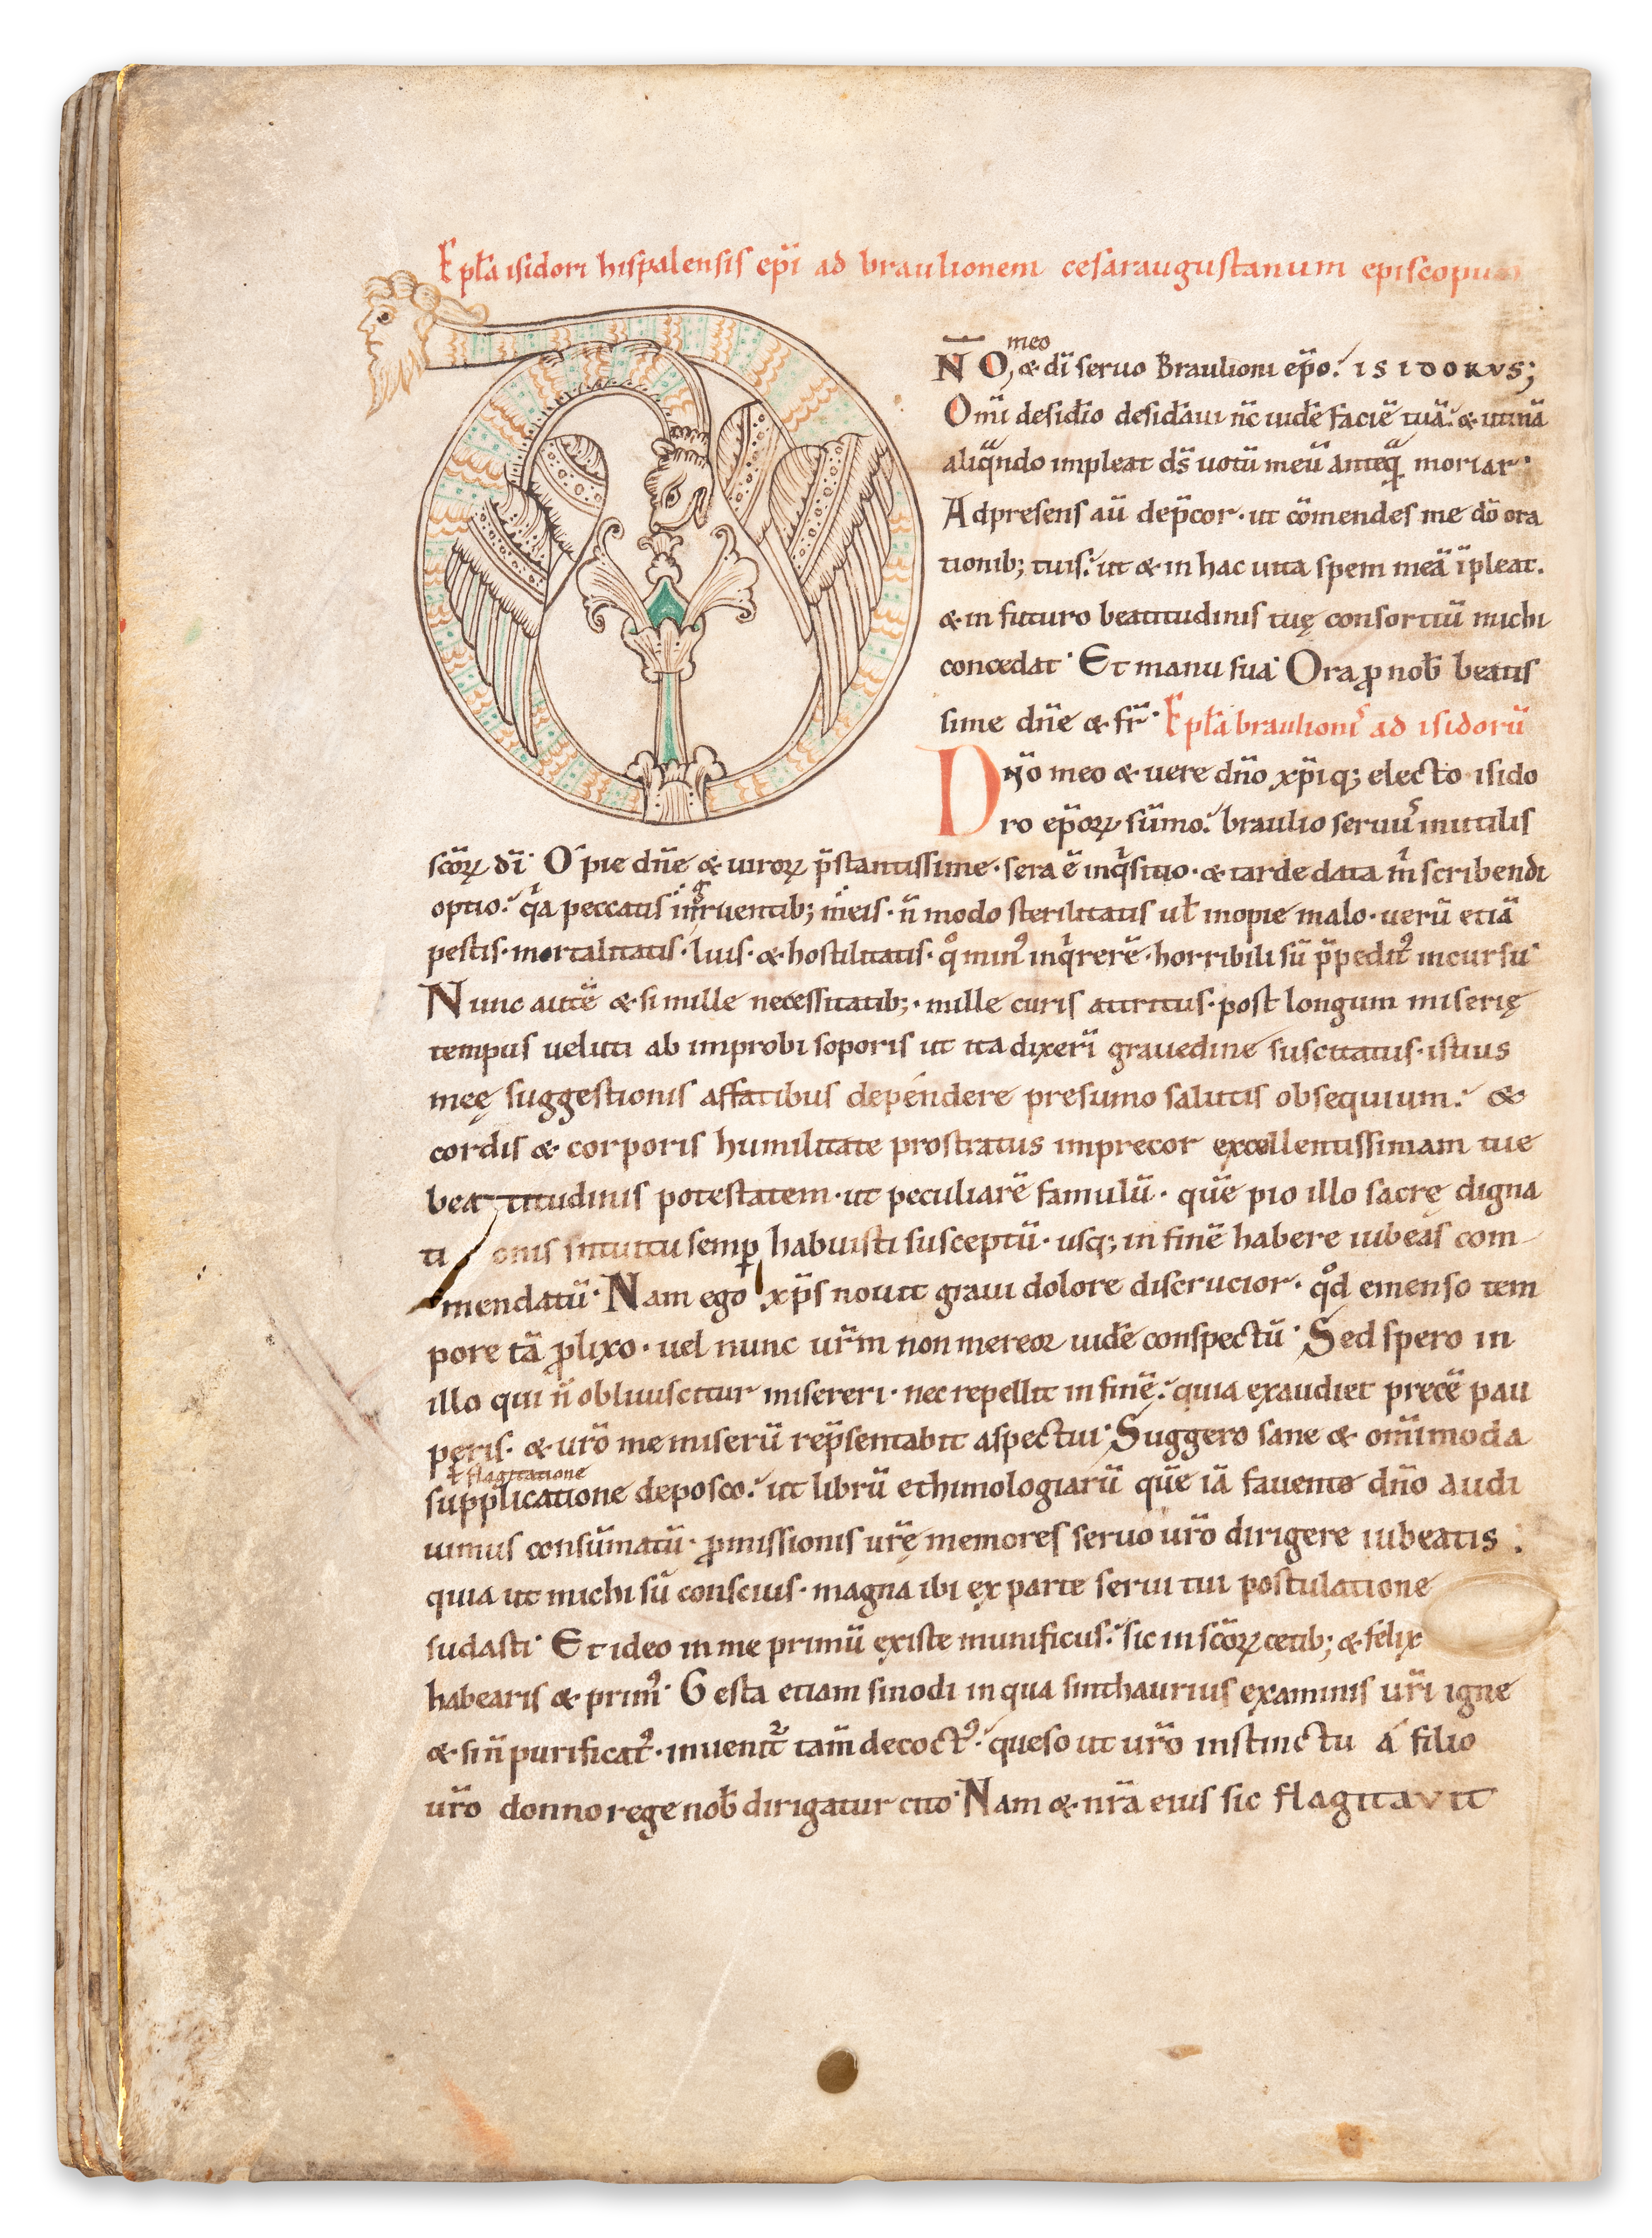 Epl̄a isidori hispalensis epī ad braulionem cesaraugustanum episcopum
meo
N̄O, & dī seruo Braulioni ep̄o. ISIDORVS;
Om̄i desid̄io desid̄aui n̄c uid̄e faciē tuā. & utinā
aliq̄ndo impleat ds̄ uotū meū anteq̄ moriar.
Adpresens aū dep̄cor · ut cōmendes me dō ora
tionib; tuis. ut & in hac uita spem meā īpleat.
& in futuro beatitudinis tuę consortiū michi
concedat. Et manu sua. Ora ꝓ nob̄ beatis
sime dn̄e & fr̄. Epl̄a braulionis ad isidorū
Dn̄o meo & uere dn̄o xp̄iq; electo isido
ro ep̄oꝝ sūmo. braulio seruus inutilis
scōꝝ dī. O pie dn̄e & uiroꝝ p̄stantissime · sera ē inq̇sitio · & tarde data m̄ scribendi
optio. qa peccatis irruentib; meis · n̄ modo sterilitatis ul̄ inopie malo · uerū etiā
pestis · mortalitatis · luis · & hostilitatis · qͦ minꝰ inqrerē · horribili sū p̄peditꝰ incursu.
Nunc autē & si mille necessitatib; · mille curis attritus · post longum miserię
tempus ueluti ab improbi soporis ut ita dixerī grauedine suscitatus · istius
meę suggestionis affatibus dependere presumo salutis obsequium. &
cordis & corporis humilitate prostratus imprecor excellentissimam tue
beatitudinis potestatem · ut peculiarē famulū · quē pio illo sacrę digna
tionis intuitu semꝑ habuisti susceptū · usq; in finē habere iubeas com
mendatū. Nam ego xp̄s nouit graui dolore discrucior · qͦd emenso tem
pore tā ꝓlixo · uel nunc ur̄m non mereor uid̄e conspectū. Sed spero in
illo qui n̄ obliuiscitur misereri · nec repellit in finē. quia exaudiet precē pau
peris · & ur̄o me miserū rep̄sentabit aspectui. Suggero sane & om̄imoda
ł flagitatione
supplicatione deposco. ut librū ethimologiarū quē iā fauente dn̄o audi
uimus consūmatū · ꝓmissionis ur̄ę memores seruo ur̄o dirigere iubeatis.
quia ut michi sū conscius · magna ibi ex parte serui tui postulatione
sudasti. Et ideo in me primū existe munificus. sic in scōꝝ cetib; & felix
habearis & primꝰ. Gesta etiam sinodi in qua sinthaurius examinis ur̄i igne
& si n̄ purificatꝰ · inuenit᷑ tam̄ decoctꝰ. queso ut ur̄o instinctu á filio
ur̄o donno rege nob̄ dirigatur cito. Nam & nr̄a eius sic flagitavit